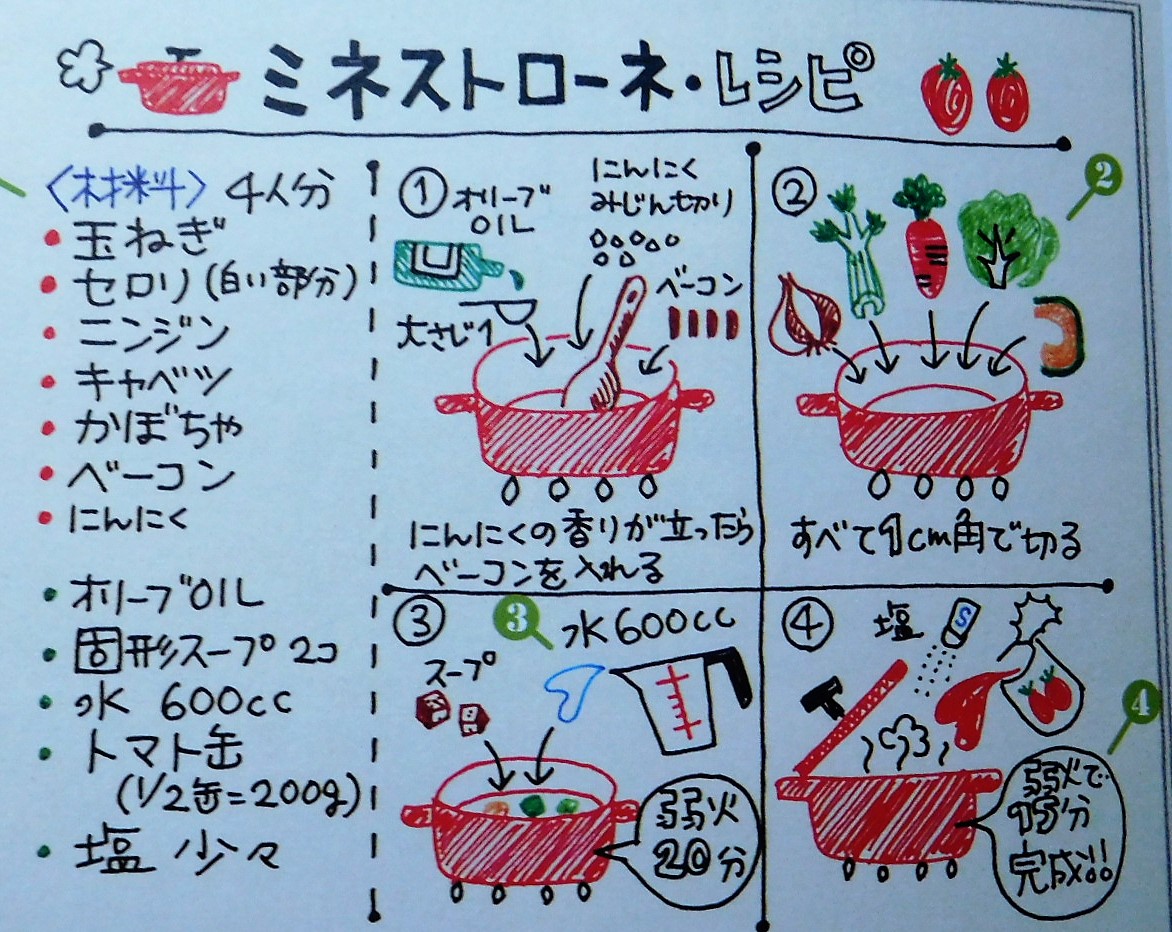 ミネストローネ・レシピ
〈材料〉 4人分
・玉ねぎ
・セロリ(白い部分)
・ニンジン
・キャベツ
・かぼちゃ
・ベーコン
・にんにく
・オリーブOIL
・固形スープ 2コ
・水 600cc
・トマト缶
(1/2缶=200g)
・塩 少々
①
オリーブ
OIL
にんにく
みじん切り
大さじ1
ベーコン
にんにくの香りが立ったら
ベーコンを入れる
②
2
すべて1cm角で切る
③
3
水 600cc
スープ
弱火
20分
④
塩
S
4
弱火で
15分
完成!!